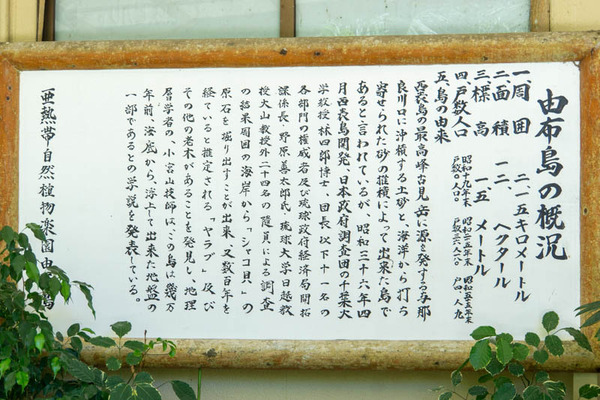 由布島の概況
一、周囲 二、一五キロメートル
二、面積 一二、ヘクタール
三、標高 一、五メートル
四、戸数人口 昭和十九年末 戸数〇人〇 昭和二五年末 昭和五五年末 戸四、人九
五、島の由来
西表島の最高峰古見岳に源を発する与那
良川口に沖積する土砂と海岸から打ち
寄せられた砂の堆積によって出来た島で
あると言われているが、昭和三十六年四
月西表島開発、日本政府調査団の千葉大
学教授林四郎博士、団長以下十一名の
各部門の権威者及び琉球政府経済局開拓
課長、野原善太郎氏、琉球大学日越教
授大山教授外二十四名の随員による調査
の結果周囲の海岸から「シャコ貝」の
原石を掘り出すことが出来、又数百年を
経ていると推定される「ヤラブ」及び
その他の老木があることを発見し、地理
層学者の、小宮山技師は、この島は幾万
年前、海底から、浮上して出来た地盤の
一部であるとの学説を発表している。
亜熱帯自然植物楽園由布島